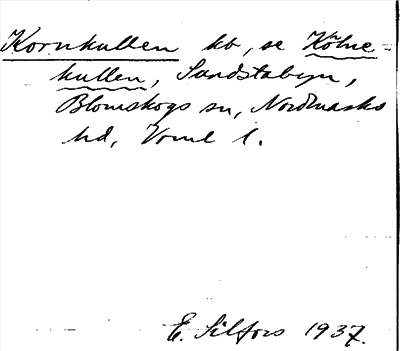 Kornkullen kb, se Kölne-
kullen, Sandstabyn,
Blomskogs sn, Nordmarks
hd, Verml l.
E. Silfors 1937.